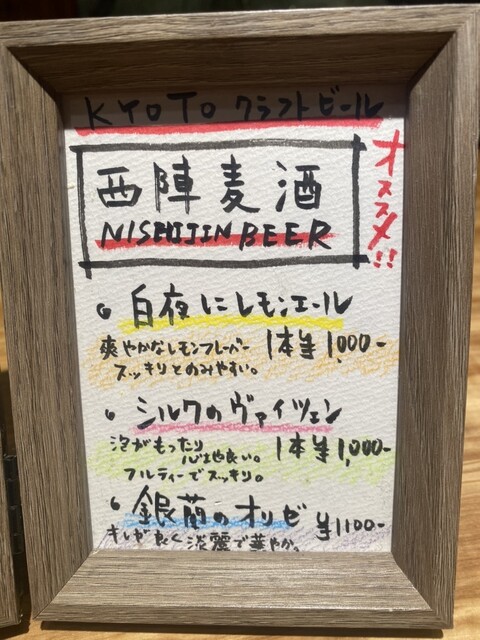 KYOTO クラフトビール
オススメ!!
西陣麦酒
NISHIJIN BEER
白夜にレモンエール
爽やかなレモンフレーバー
スッキリとのみやすい。
1本¥1,000-
シルクのヴァイツェン
泡がもったり
心地良い。
フルティーでスッキリ。
1本¥1,000-
銀蘭のオリゼ
¥1100-
キレが良く淡麗で華やか。